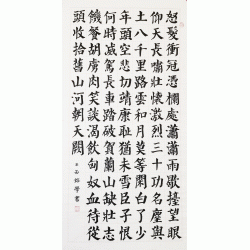 怒髮衝冠憑欄處瀟瀟雨歇擡望眼
仰天長嘯壯懷激烈三十功名塵與
土八千里路雲和月莫等閒白了少
年頭空悲切靖康耻猶未雪臣子恨
何時滅駕長車踏破賀蘭山缺壯志
饑餐胡虜肉笑談渴飲匈奴血待從
頭收拾舊山河朝天闕
學書